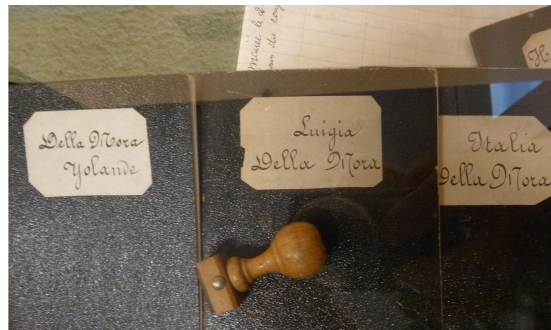 Della Mora
Yolande
Luigia
Della Mora
Italia
Della Mora
H.